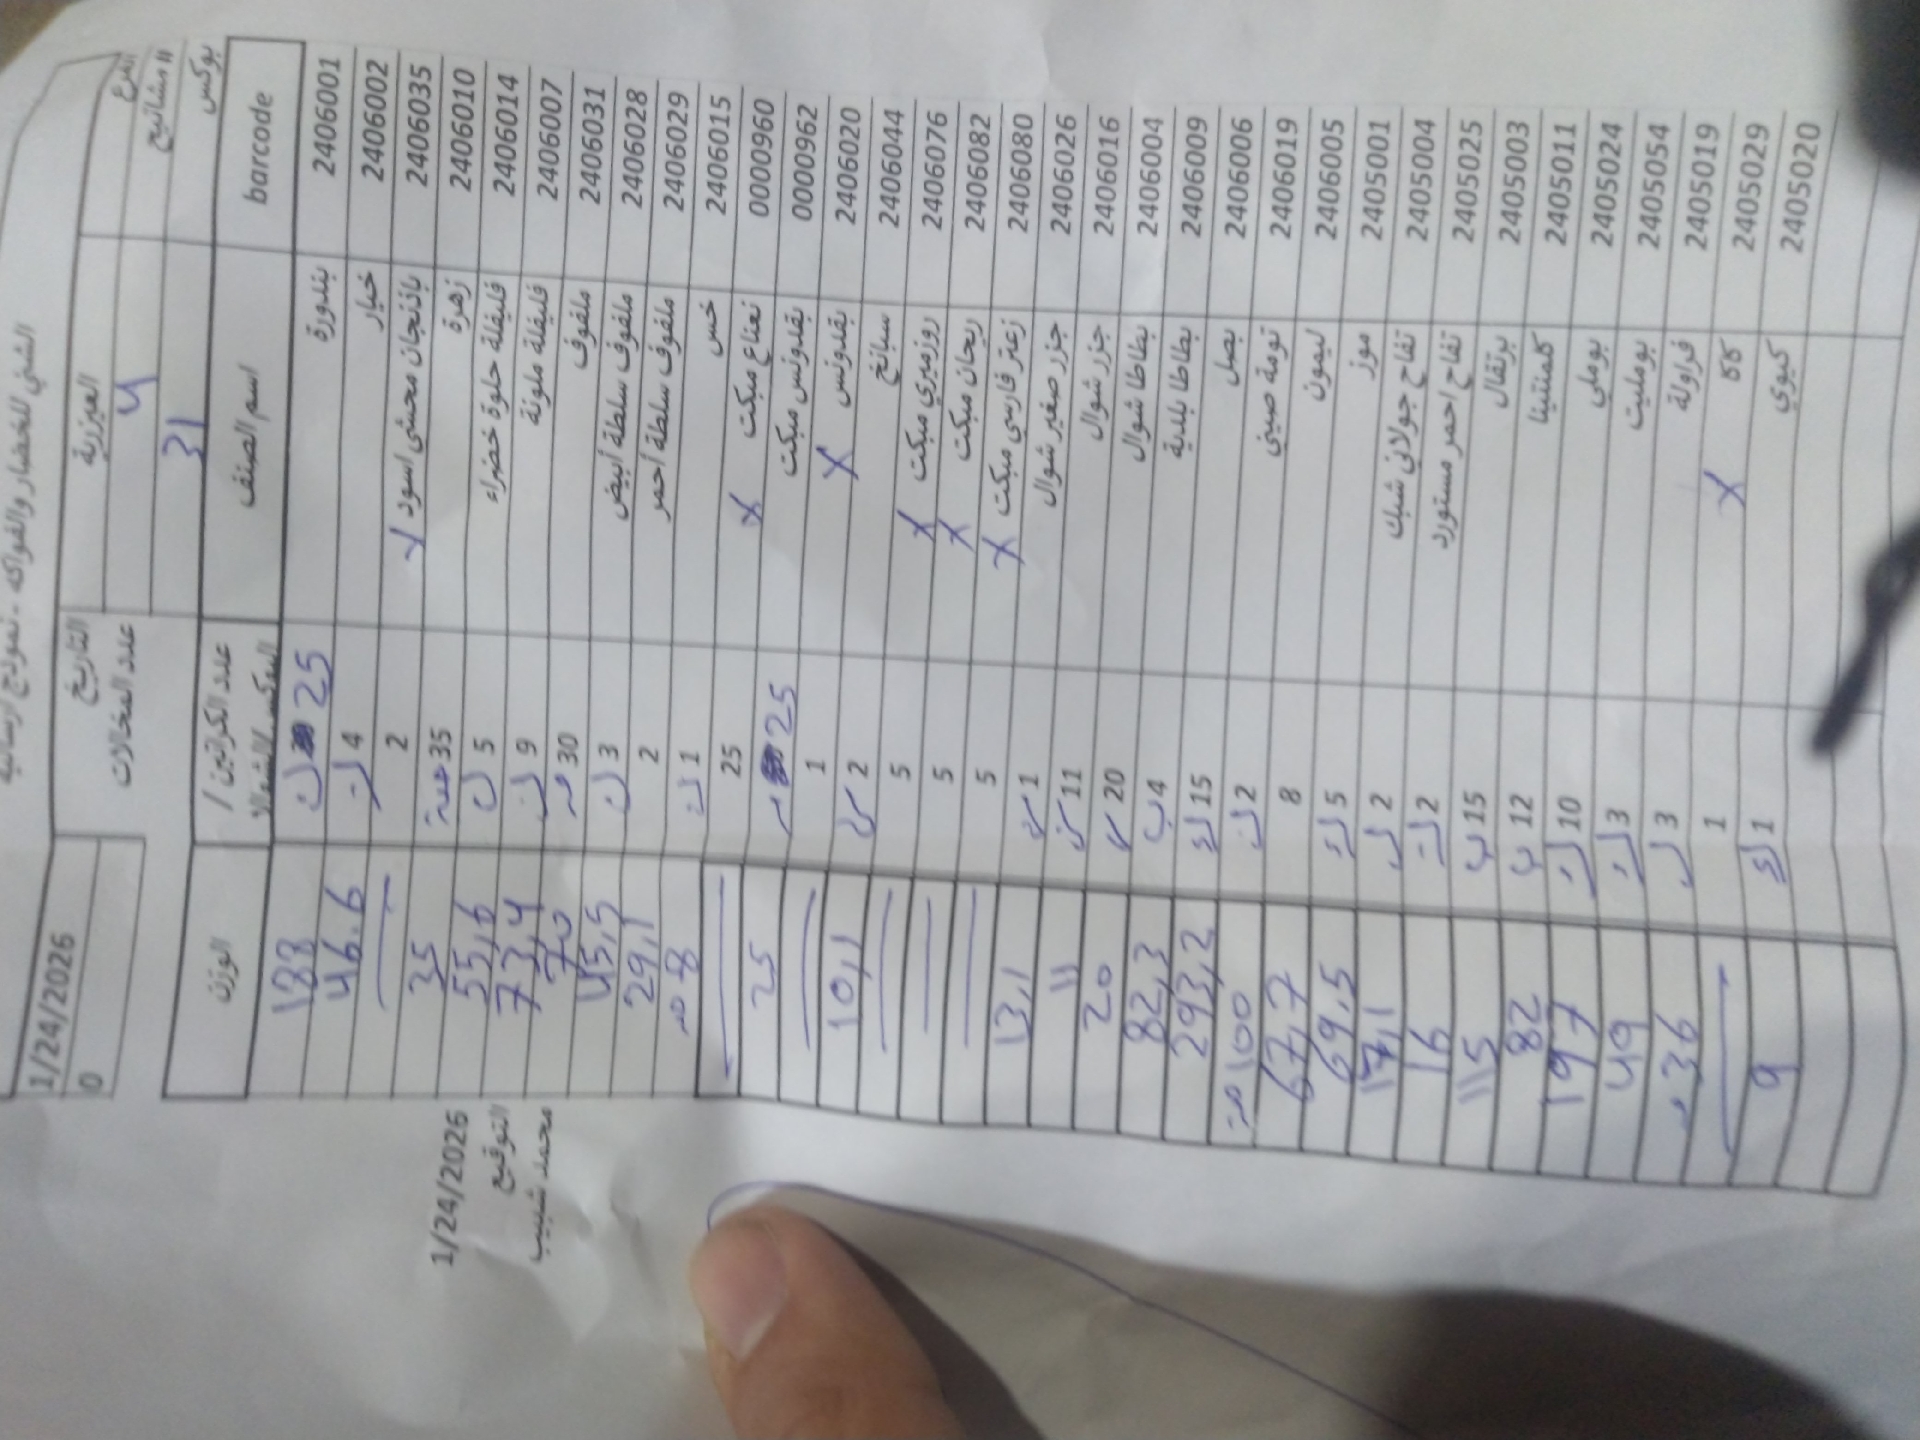 الشني للخضار والفواكه - نموذج ارسالية
الفرع العيزرية التاريخ 1/24/2026
11 مشاتيح 4 عدد المخالات 0
بوكس 31
barcode اسم الصنف عدد الكراتين / الوزن
2406001 بندورة 25 188
2406002 خيار 4 46.6
2406035 باذنجان محشي اسود x 2
2406010 زهرة 35 حبة 35
2406014 فليفلة حلوة خضراء 5 55,6
2406007 فليفلة ملونة 9 73,4
2406031 ملفوف 30 70
2406028 ملفوف سلطة أبيض 3 45,5
2406029 ملفوف سلطة أحمر 2 29,1
2406015 خس 1 8
0000960 نعناع مبكت x 25
0000962 بقدونس مبكت 25 25
2406020 بقدونس x 1
2406044 سبانخ 2 10,1
2406076 روزميري مبكت x 5
2406082 ريحان مبكت x 5
2406080 زعتر فارسي مبكت x 5
2406026 جزر صغير شوال 1 13,1
2406016 جزر شوال 11 11
2406004 بطاطا شوال 20 20
2406009 بطاطا بلدية 4 82,3
2406006 بصل 15 293,2
2406019 تومة صيني 2 100
2406005 ليمون 8 67,7
2405001 موز 5 69,5
2405004 تفاح جولاني شبك 2 17,1
2405025 تفاح احمر مستورد 2 16
2405003 برتقال 15 115
2405011 كلمنتينا 12 82
2405024 بوملي 10 197
2405054 بومليت 3 49
2405019 فراولة 3 36
2405029 كاكا x 1
2405020 كيوي 1 9
1/24/2026
التوقيع
محمد شبيب